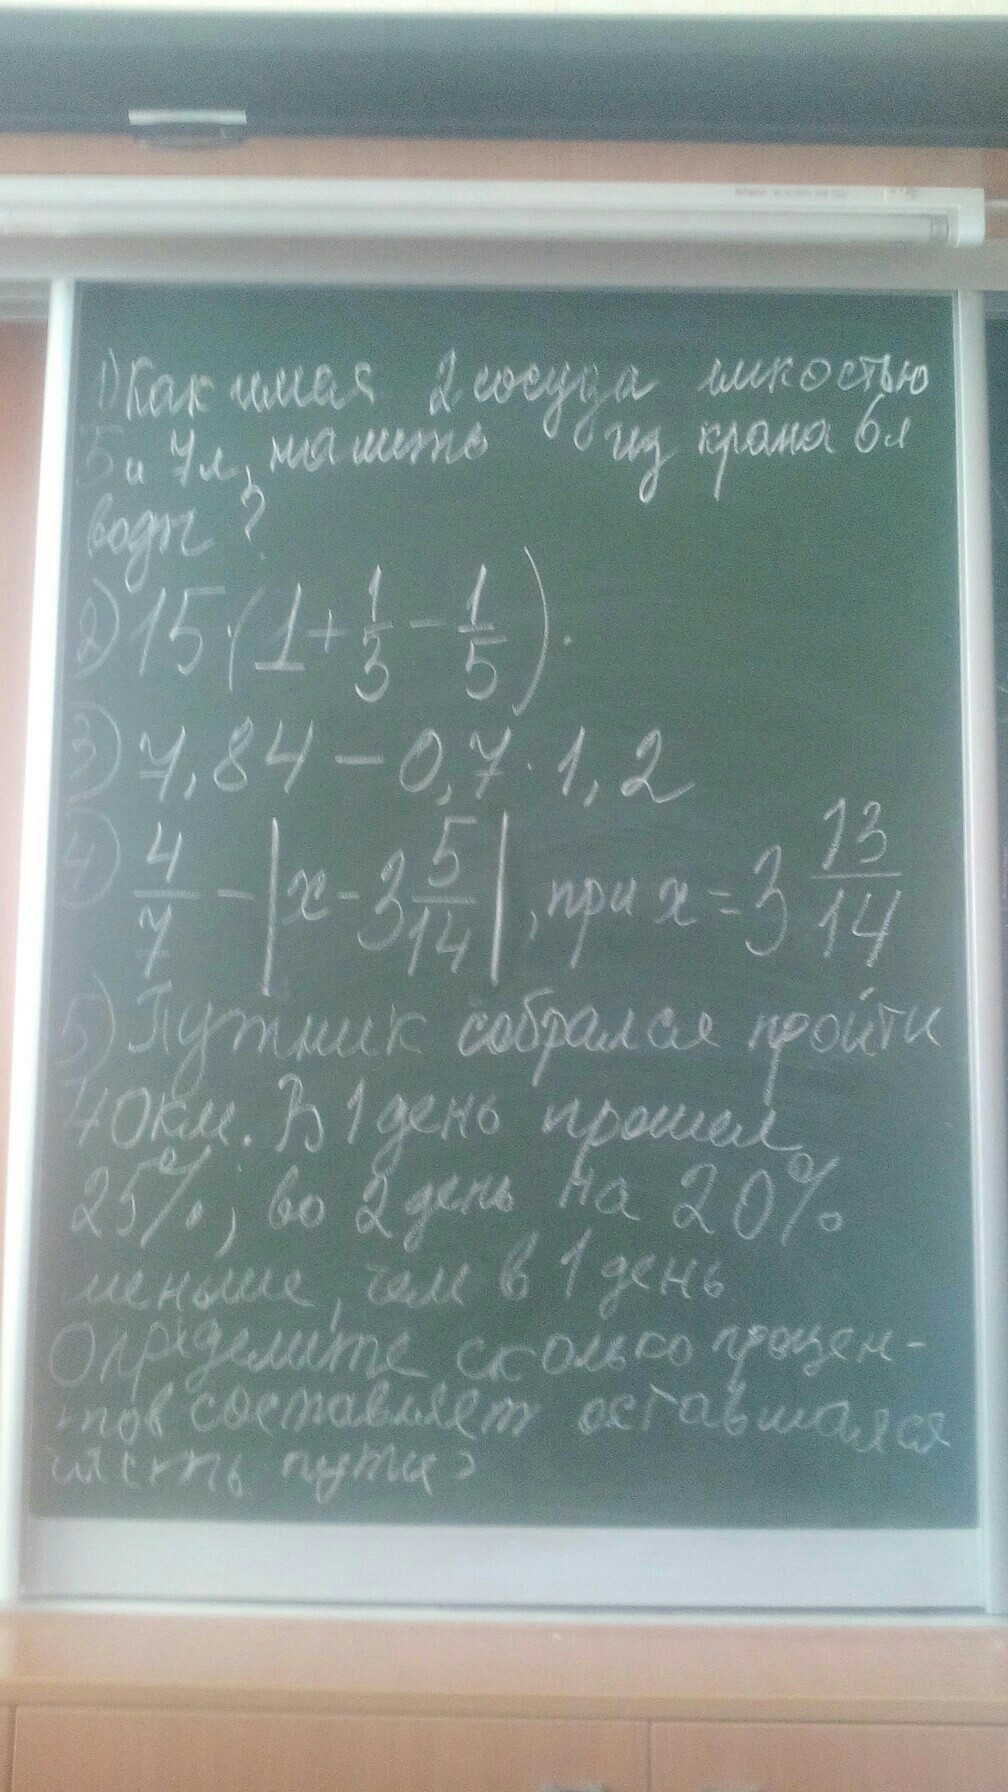 1) Как имея 2 сосуда емкостью
5 и 7л, налить из крана 6л
воды?
2) 15·(1+1/3-1/5).
3) 7,84-0,7·1,2
4) 4/7-|x-3 5/14|, при x=3 13/14
5) Путник собрался пройти
40км. В 1 день прошел
25%, во 2 день на 20%
меньше, чем в 1 день
Определите сколько процен-
тов составляет оставшаяся
часть пути?